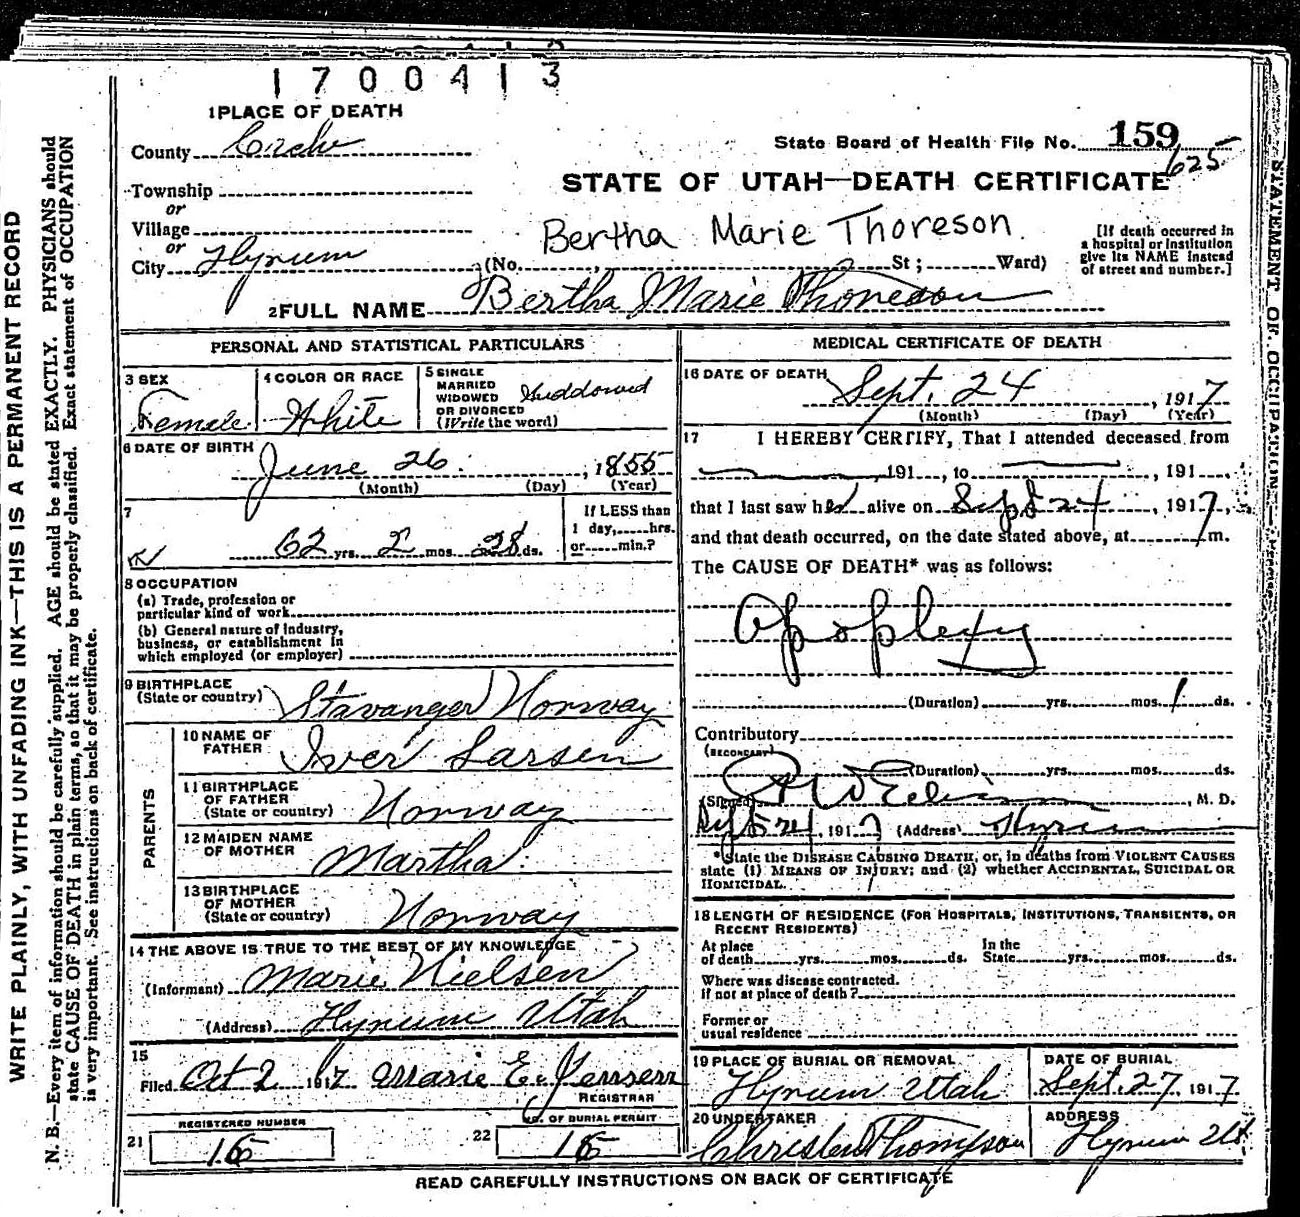 1700413
1 PLACE OF DEATH
County Cache
State Board of Health File No. 159
625
Township
or
STATE OF UTAH—DEATH CERTIFICATE
Village
or
Bertha Marie Thoreson.
[If death occurred in
a hospital or institution
give its NAME instead
of street and number.]
City Hyrum (No. , St ; Ward)
2 FULL NAME Bertha Marie Thoreson
PERSONAL AND STATISTICAL PARTICULARS
3 SEX
Female
4 COLOR OR RACE
White
5 SINGLE
MARRIED
WIDOWED
OR DIVORCED
(Write the word)
Widdowed
6 DATE OF BIRTH
June 26 , 1855
(Month) (Day) (Year)
7
62 yrs. 2 mos. 28 ds.
If LESS than
1 day, hrs.
or min.?
8 OCCUPATION
(a) Trade, profession or
particular kind of work
(b) General nature of industry,
business, or establishment in
which employed (or employer)
9 BIRTHPLACE
(State or country) Stavanger Norway
PARENTS
10 NAME OF
FATHER Iver Larsen
11 BIRTHPLACE
OF FATHER
(State or country) Norway
12 MAIDEN NAME
OF MOTHER Martha
13 BIRTHPLACE
OF MOTHER
(State or country) Norway
14 THE ABOVE IS TRUE TO THE BEST OF MY KNOWLEDGE
(Informant) Marie Nielsen
(Address) Hyrum Utah
15
Filed Oct 2 1917 Marie E.
REGISTRAR
REGISTERED NUMBER
21 15
NO. OF BURIAL PERMIT
22 15
MEDICAL CERTIFICATE OF DEATH
16 DATE OF DEATH
Sept. 24 , 1917
(Month) (Day) (Year)
17 I HEREBY CERTIFY, That I attended deceased from
, 191 , to , 191
that I last saw her alive on Sept 24 , 1917,
and that death occurred, on the date stated above, at m.
The CAUSE OF DEATH* was as follows:
Apoplexy
(Duration) yrs. mos. 1 ds.
Contributory
(SECONDARY)
(Duration) yrs. mos. ds.
(Signed) , M. D.
Sept 24, 1917 (Address) Hyrum
*State the DISEASE CAUSING DEATH, or, in deaths from VIOLENT CAUSES
state (1) MEANS OF INJURY; and (2) whether ACCIDENTAL, SUICIDAL OR
HOMICIDAL.
18 LENGTH OF RESIDENCE (FOR HOSPITALS, INSTITUTIONS, TRANSIENTS, OR
RECENT RESIDENTS)
At place
of death yrs. mos. ds.
In the
State yrs. mos. ds.
Where was disease contracted.
if not at place of death?
Former or
usual residence
19 PLACE OF BURIAL OR REMOVAL
Hyrum Utah
DATE OF BURIAL
Sept. 27, 1917
20 UNDERTAKER
Thompson
ADDRESS
Hyrum Ut
READ CAREFULLY INSTRUCTIONS ON BACK OF CERTIFICATE
WRITE PLAINLY, WITH UNFADING INK—THIS IS A PERMANENT RECORD
N. B.—Every item of information should be carefully supplied. AGE should be stated EXACTLY. PHYSICIANS should
state CAUSE OF DEATH in plain terms, so that it may be properly classified. Exact statement of OCCUPATION
is very important. See instructions on back of certificate.
STATEMENT OF OCCUPATION